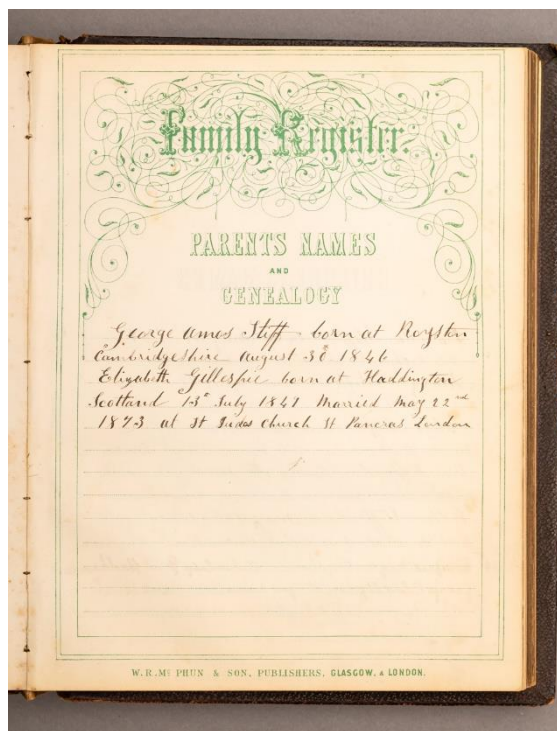 Family Register.
PARENTS NAMES
AND
GENEALOGY
George Amos Stiff born at Royston
Cambridgeshire August 30 1846
Elizabeth Gillespie born at Haddington
Scotland 13 July 1841 Married May 22nd
1873 at St Judas Church St Pancras London
W.R. Mc PHUN & SON, PUBLISHERS, GLASGOW, & LONDON.